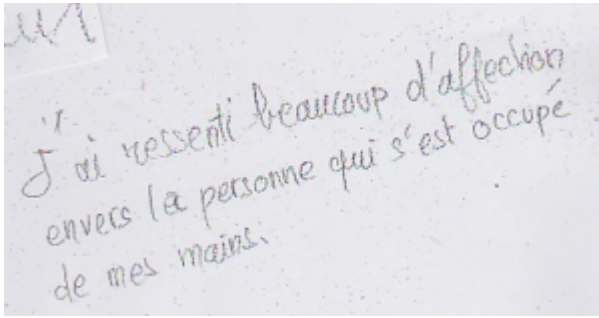 J'ai ressenti beaucoup d'affection
envers la personne qui s'est occupé
de mes mains.